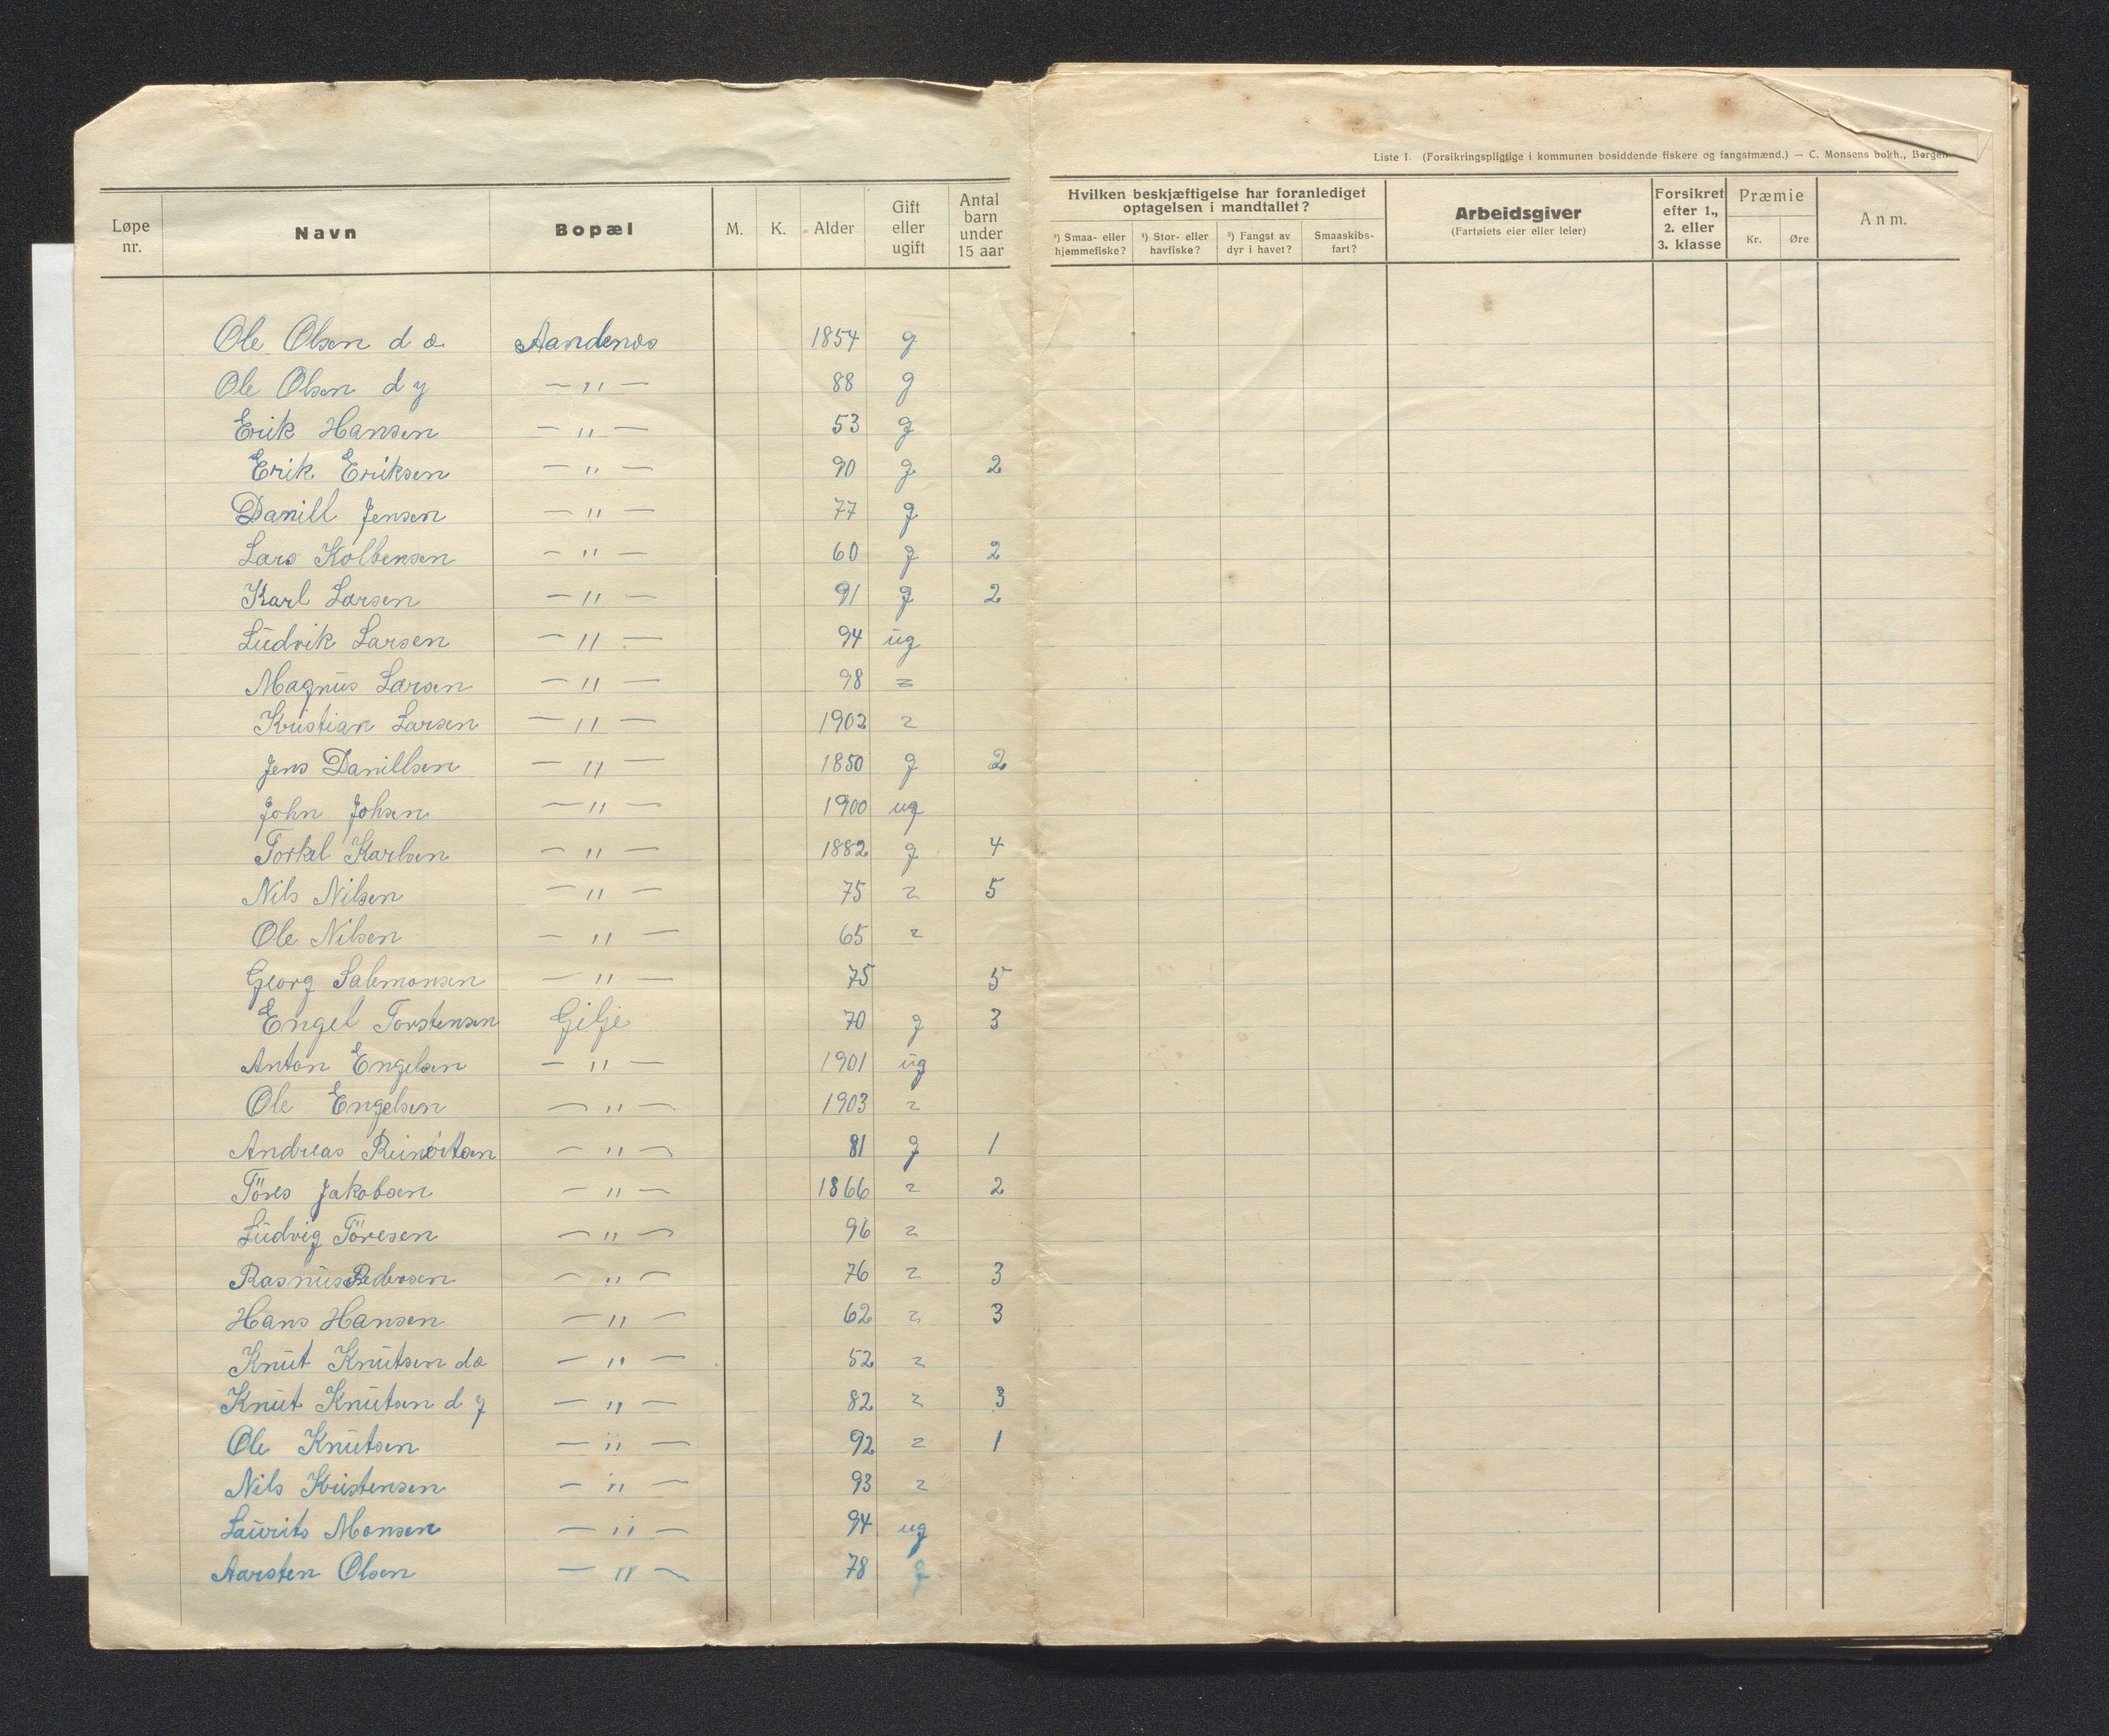 Liste 1. (Forsikringspligtige i kommunen bosiddende fiskere og fangstmænd.) — C. Monsens bokh., Bergen
Løpe nr. Navn Bopæl M. K. Alder Gift eller ugift Antal barn under 15 aar
Hvilken beskjæftigelse har foranlediget optagelsen i mandtallet?
¹) Smaa- eller hjemmefiske? ¹) Stor- eller havfiske? ²) Fangst av dyr i havet? Smaaskibs- fart?
Arbeidsgiver (Fartøiets eier eller leier)
Forsikret efter 1., 2. eller 3. klasse
Præmie Kr. Øre
Anm.
Ole Olsen d æ Aandenes 1854 g
Ole Olsen d y — " — 88 g
Erik Hansen — " — 53 g
Erik Eriksen — " — 90 g 2
Danill Jensen — " — 77 g
Lars Kolbensen — " — 60 g 2
Karl Larsen — " — 91 g 2
Ludvik Larsen — " — 94 ug
Magnus Larsen — " — 98 =
Kristian Larsen — " — 1902 =
Jens Danillsen — " — 1850 g 2
John Johsen — " — 1900 ug
Torkel Karlsen — " — 1882 g 4
Nils Nilsen — " — 75 = 5
Ole Nilsen — " — 65 =
Georg Salemonsen — " — 75 5
Engel Torstensen Gilje 70 g 3
Anton Engelsen — " — 1901 ug
Ole Engelsen — " — 1903 =
Andreas — " — 81 g 1
Töres Jakobsen — " — 1866 = 2
Ludvig Töresen — " — 96 =
Rasmus Pedersen — " — 76 = 3
Hans Hansen — " — 62 = 3
Knut Knutsen d æ — " — 52 =
Knut Knutsen d y — " — 82 = 3
Ole Knutsen — " — 92 = 1
Nils Kristensen — " — 93 =
Laurits Monsen — " — 94 ug
Aarsten Olsen — " — 78 g